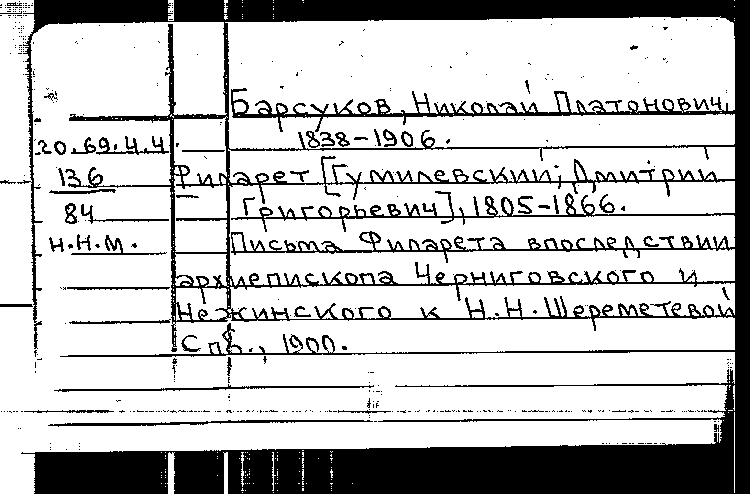 Барсуков, Николай Платонович,
20.69.4.4. 1838-1906.
136 Филарет [Гумилевский; Дмитрий
84 Григорьевич], 1805-1866.
Н.Н.М. Письма Филарета впоследствии
архиепископа Черниговского и
Нежинского к Н.Н. Шереметевой
Спб., 1900.